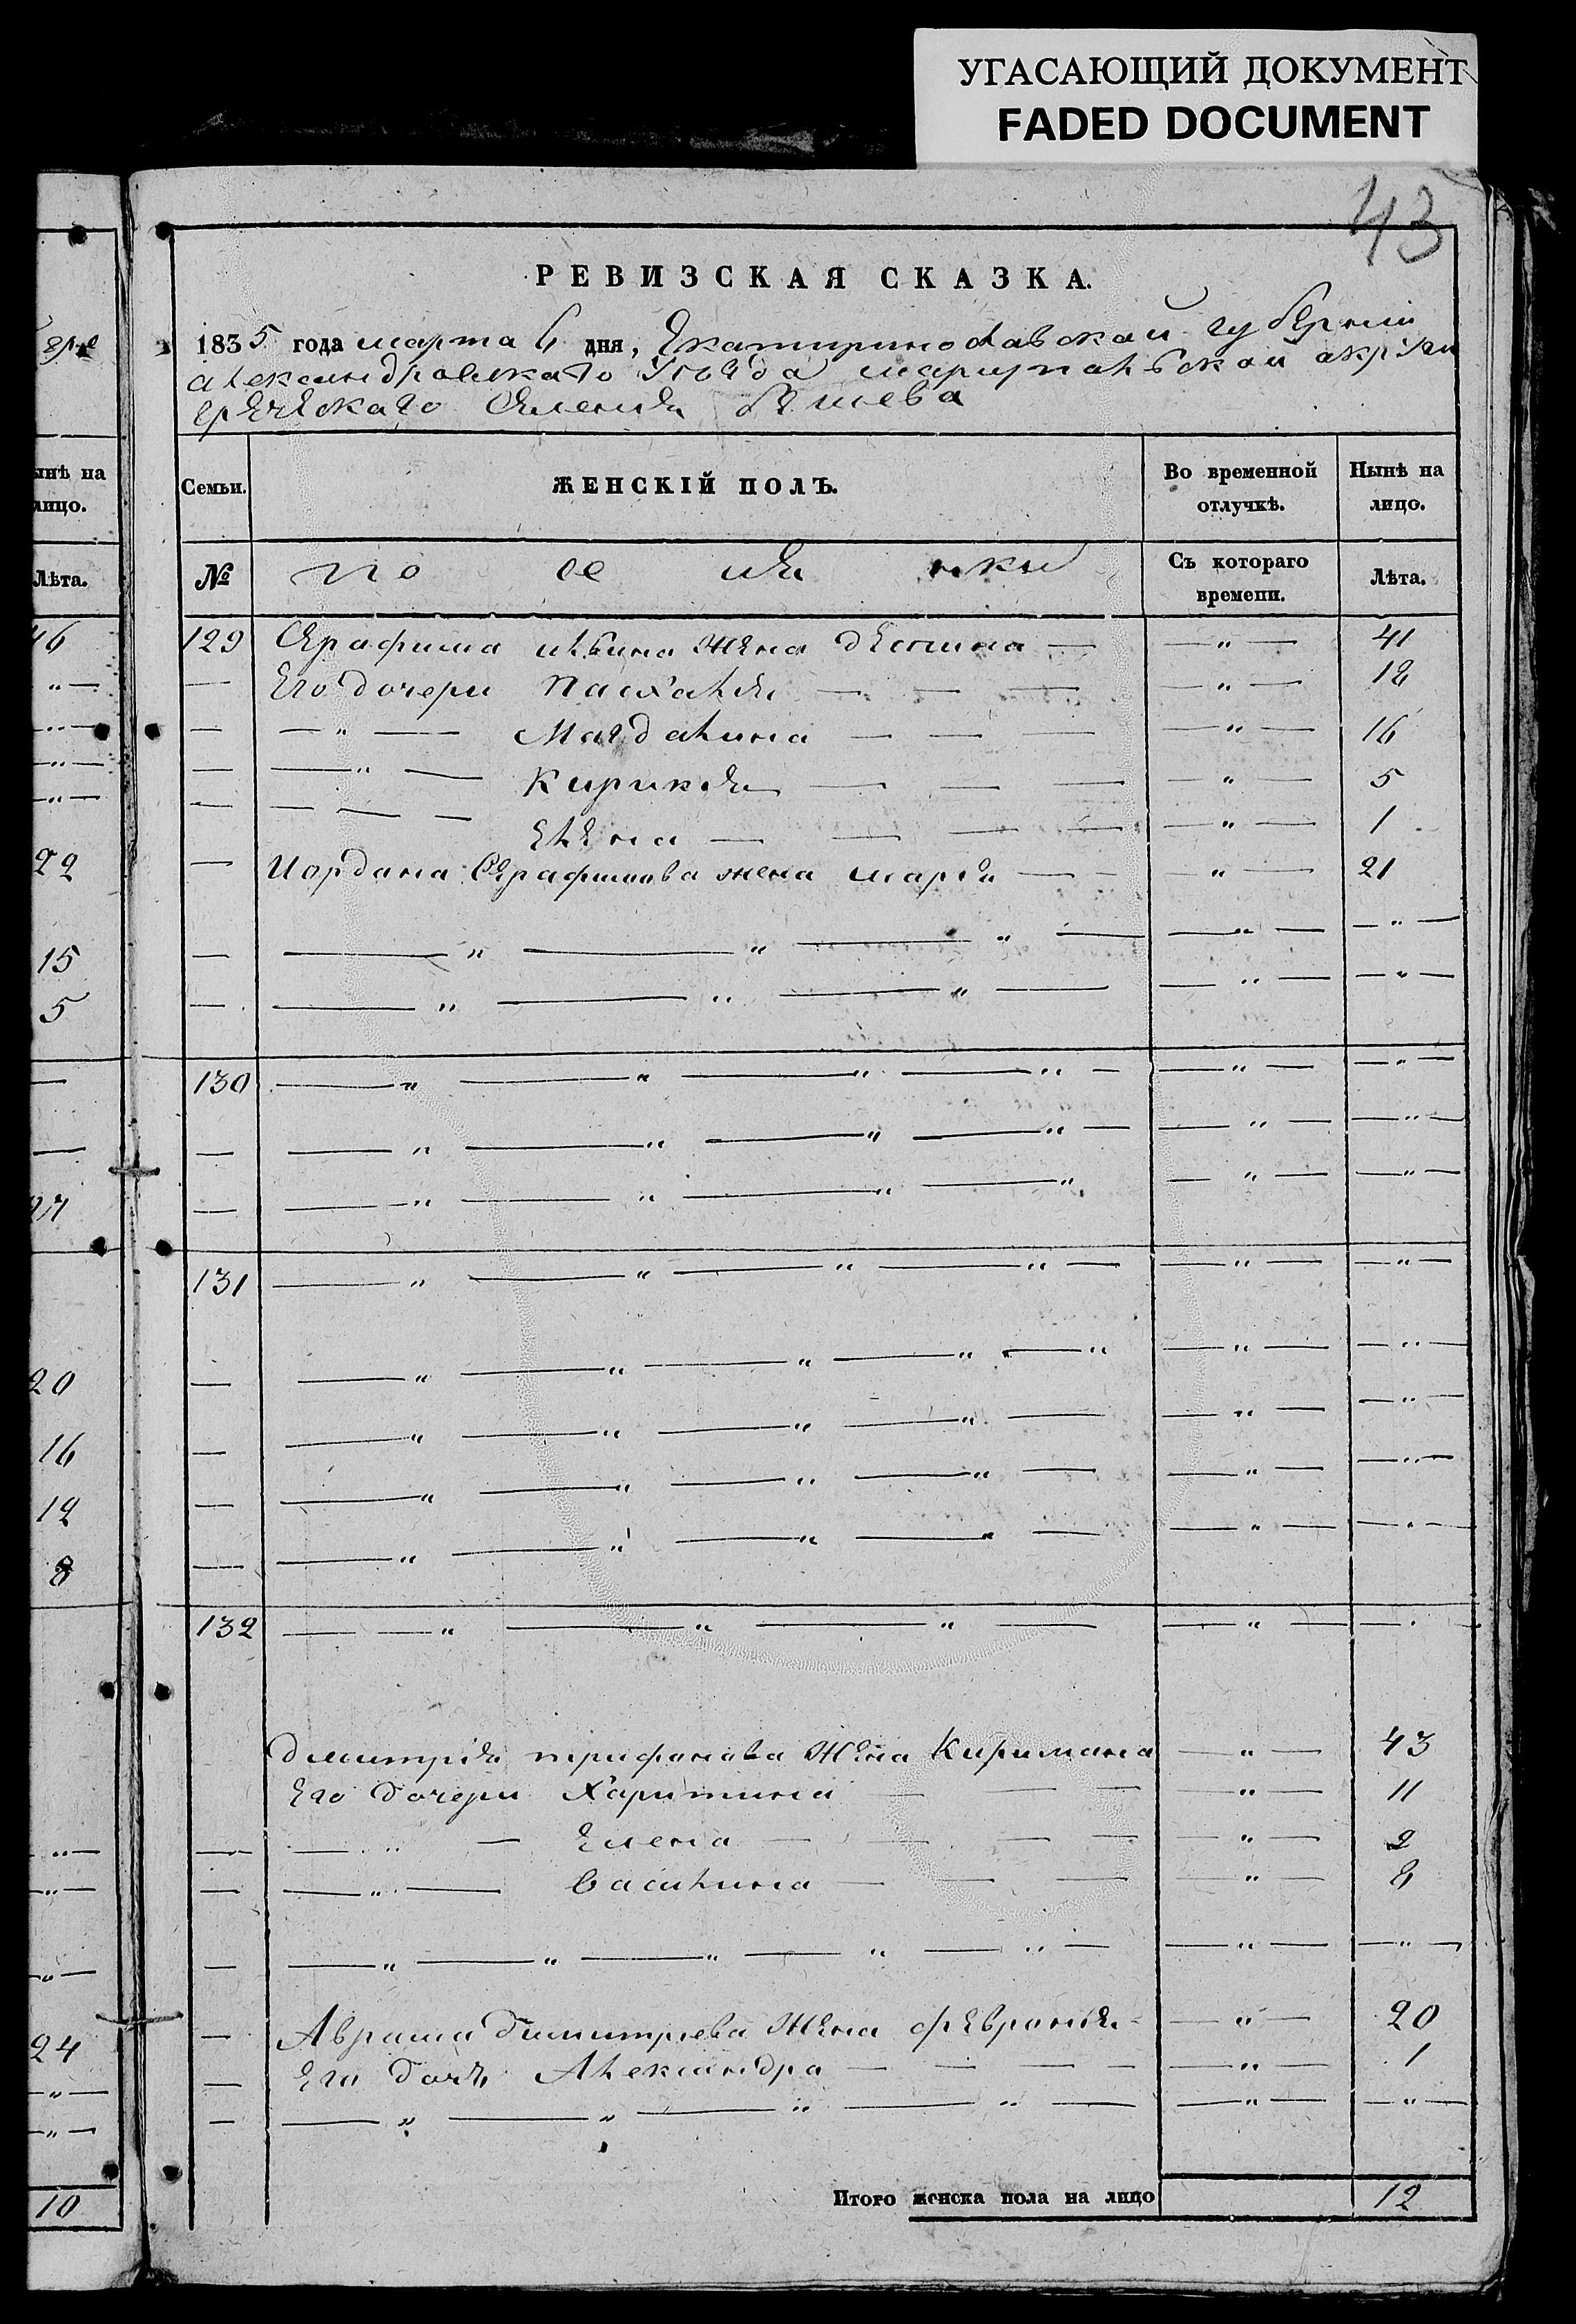 УГАСАЮЩИЙ ДОКУМЕНТ
FADED DOCUMENT
43
РЕВИЗСКАЯ СКАЗКА.
1835 года марта 6 дня, Екатеринославской губернии
александровскаго уезда мариупольской округи
греческаго селения бешева
Семьи. ЖЕНСКІЙ ПОЛЪ. Во временной отлучкѣ. Нынѣ на лицо.
№ поселянки Съ котораго времени. Лѣта.
129 Серафима ильина жена деспина — — „ — 41
— Его дочери пасхалия — — — — „ — 12
— — „ — Магдалина — — — — „ — 16
— — „ — Кирикия — — — — „ — 5
— — — — Елена — — — — — „ — 1
— Иордана Серафимова жена мария — — — „ — 21
— — „ — „ — „ — — „ — — „ —
— — „ — „ — „ — — „ — — „ —
130 — „ — „ — „ — „ — — „ — — „ —
— — „ — „ — „ — „ — — „ — — „ —
— — „ — „ — „ — „ — „ — — „ —
131 — „ — „ — „ — „ — — „ — — „ —
— — „ — „ — „ — „ — „ — „ — — „ —
— — „ — „ — „ — „ — — „ — — „ —
— — „ — „ — „ — „ — — „ — — „ —
— — „ — „ — „ — „ — — „ — — „ —
132 — — „ — „ — „ — — „ — — „ —
димитрия трифонова жена Киримана — „ — 43
Его дочери Харитина — — — — „ — 11
— — „ — Елена — — — — — „ — 2
— — „ — василина — — — — „ — 8
— — „ — „ — „ — „ — „ — — „ — — „ —
— Аврама димитриева жена феврония — — „ — 20
— Его дочь Александра — — — — — „ — 1
— — „ — „ — „ — „ — — „ — — „ —
Итого женска пола на лицо 12
ынѣ на
лицо.
Лѣта.
46
22
15
5
27
20
16
12
8
24
10